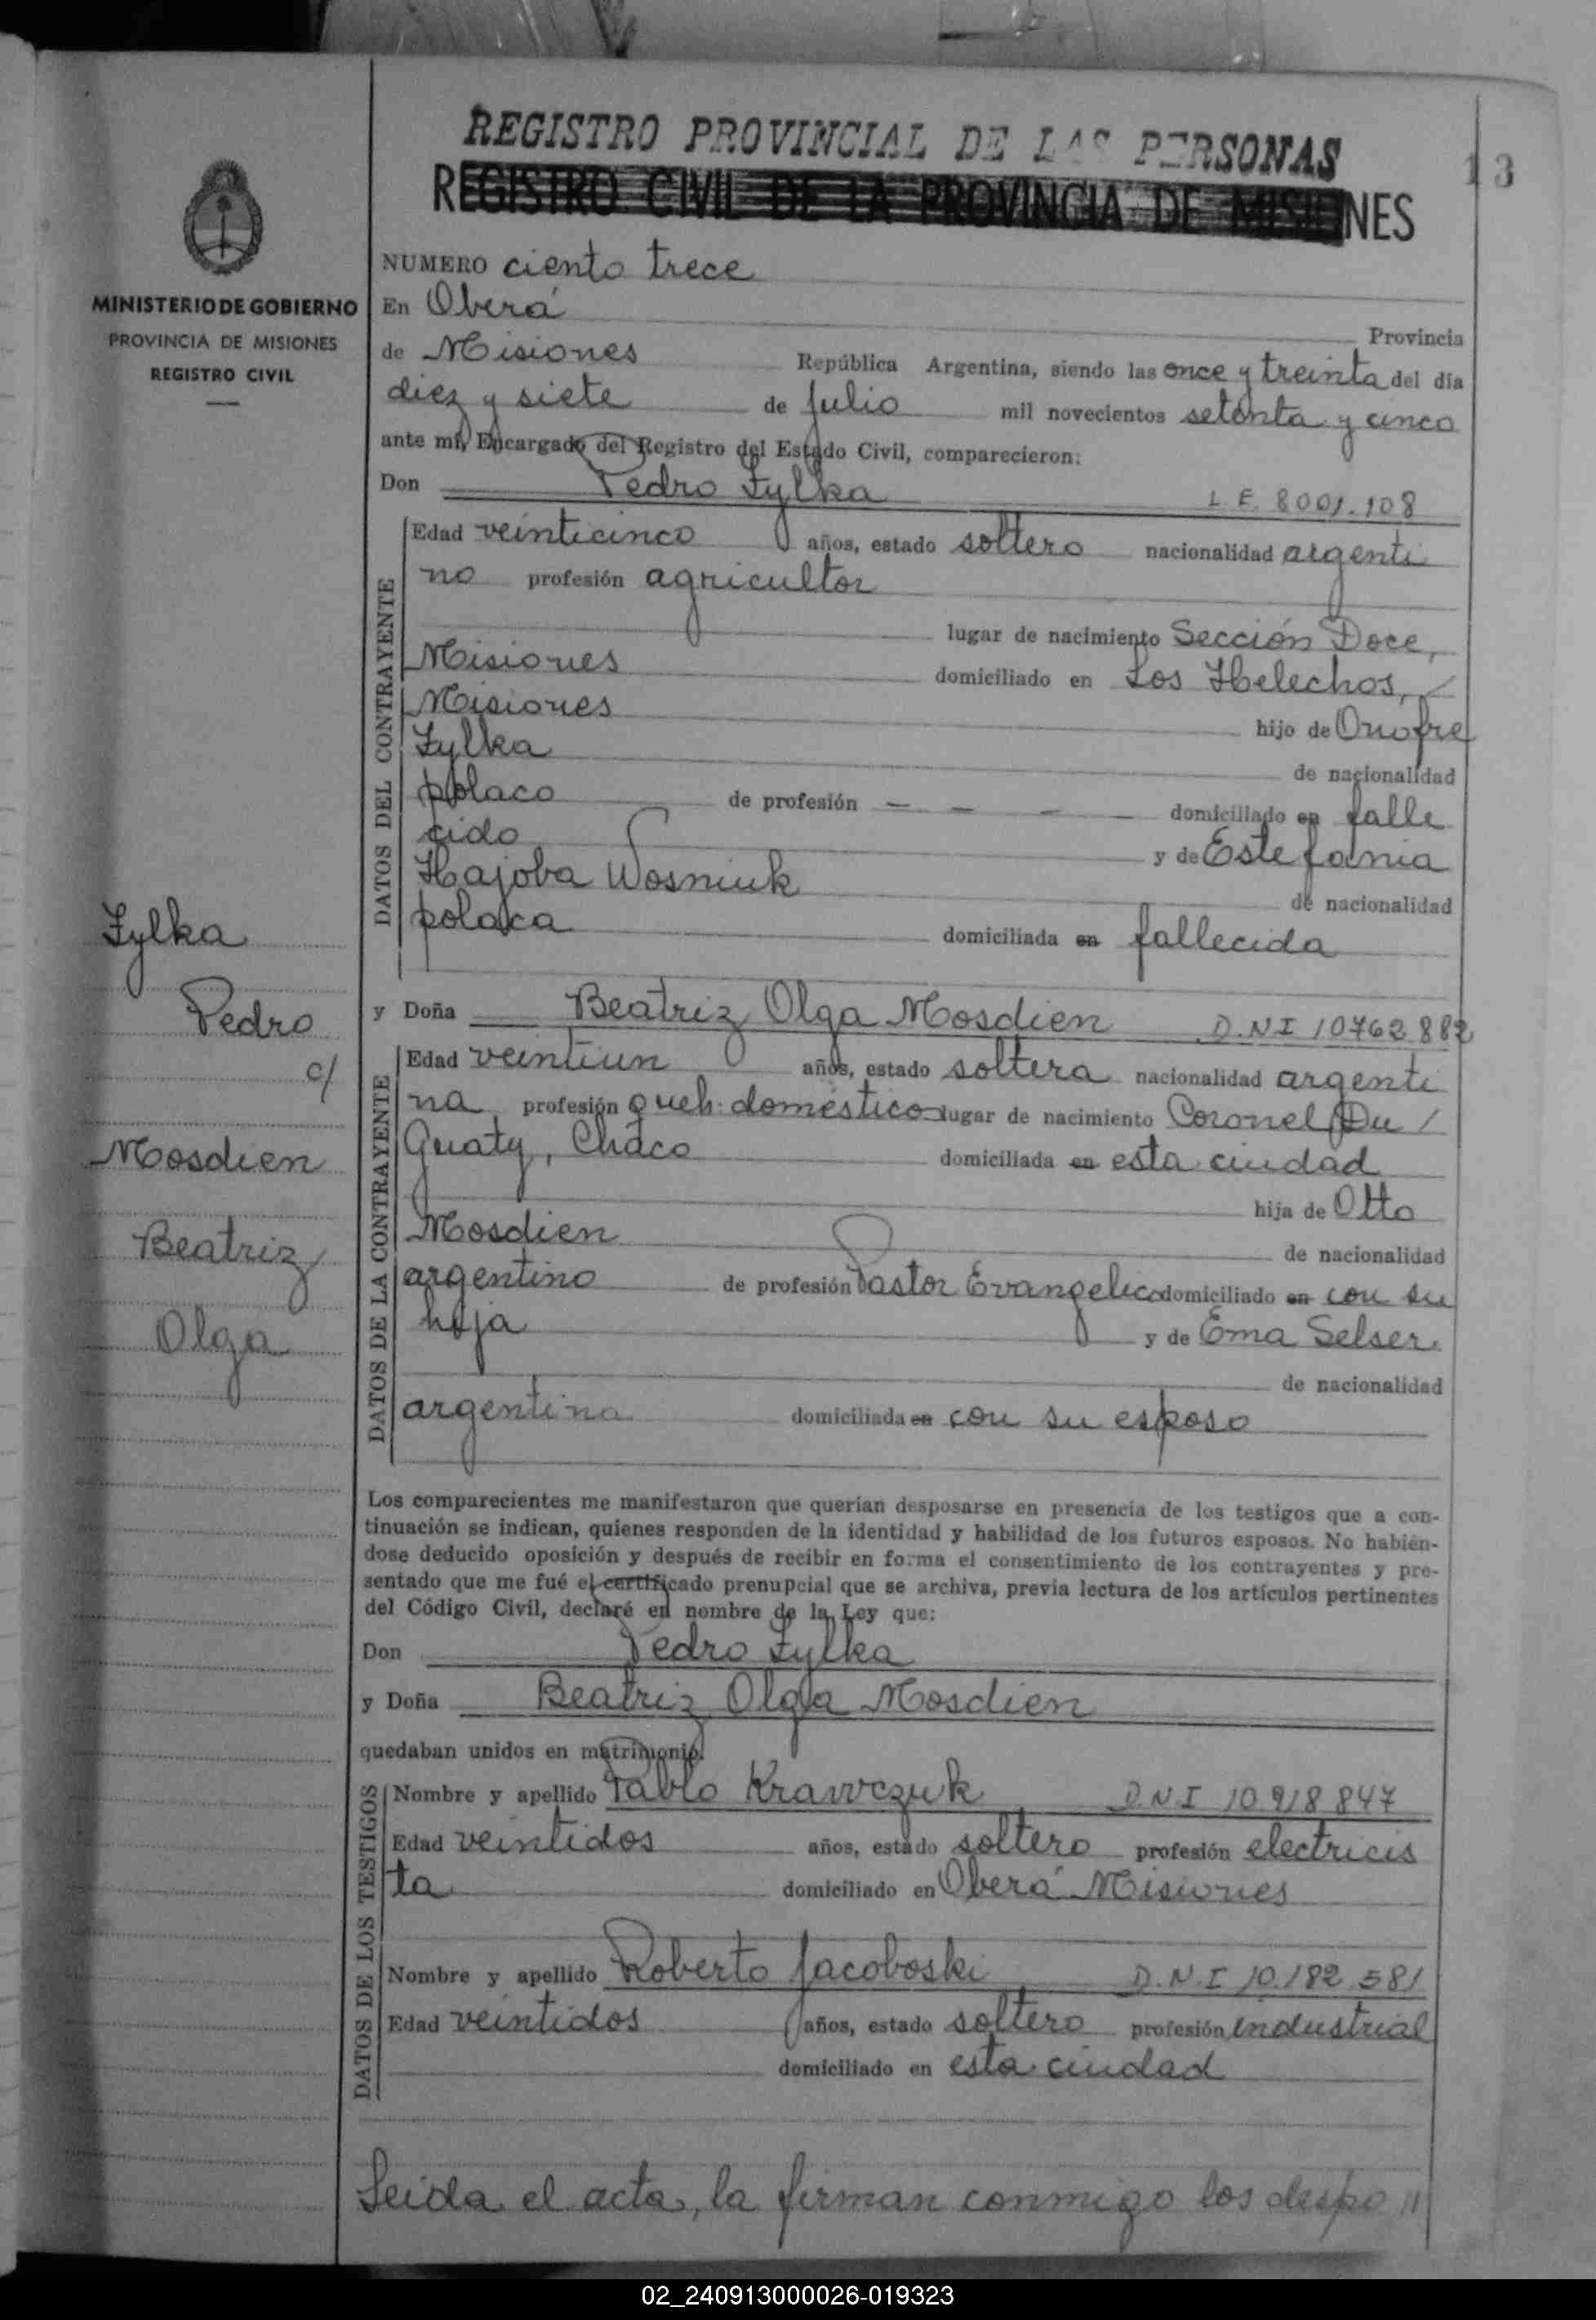 REGISTRO PROVINCIAL DE LAS PERSONAS
REGISTRO CIVIL DE LA PROVINCIA DE MISIONES
13
MINISTERIO DE GOBIERNO
PROVINCIA DE MISIONES
REGISTRO CIVIL
NUMERO ciento trece
En Oberá Provincia
de Misiones República Argentina, siendo las once y treinta del día
diez y siete de Julio mil novecientos setenta y cinco
ante mí, Encargado del Registro del Estado Civil, comparecieron:
Don Pedro Zylka L.E. 8001.108
DATOS DEL CONTRAYENTE
Edad veinticinco años, estado soltero nacionalidad argenti
no profesión agricultor
lugar de nacimiento Sección Doce,
Misiones domiciliado en Los Helechos,
Misiones hijo de Onofre
Zylka de nacionalidad
polaco de profesión — — — — domiciliado en falle
cido y de Estefania
Hajoba Wosniuk de nacionalidad
polaca domiciliada en fallecida
Zylka
Pedro
c/
Mosdien
Beatriz
Olga
y Doña Beatriz Olga Mosdien D.N.I 10762.882
DATOS DE LA CONTRAYENTE
Edad veintiun años, estado soltera nacionalidad argenti
na profesión queh: doméstico lugar de nacimiento Coronel Du /
Guaty, Chaco domiciliada en esta ciudad
hija de Otto
Mosdien de nacionalidad
argentino de profesión Pastor Evangelico domiciliado en con su
hija y de Ema Selser
de nacionalidad
argentina domiciliada en con su esposo
Los comparecientes me manifestaron que querían desposarse en presencia de los testigos que a con-
tinuación se indican, quienes responden de la identidad y habilidad de los futuros esposos. No habién-
dose deducido oposición y después de recibir en forma el consentimiento de los contrayentes y pre-
sentado que me fué el certificado prenupcial que se archiva, previa lectura de los artículos pertinentes
del Código Civil, declaré en nombre de la Ley que:
Don Pedro Zylka
y Doña Beatriz Olga Mosdien
quedaban unidos en matrimonio.
DATOS DE LOS TESTIGOS
Nombre y apellido Pablo Krawczuk D.N.I 10.918.847
Edad veintidos años, estado soltero profesión electricis
ta domiciliado en Oberá Misiones
Nombre y apellido Roberto Jacoboski D.N.I 10.182.581
Edad veintidos años, estado soltero profesión industrial
domiciliado en esta ciudad
Leida el acta, la firman conmigo los despo //
02_240913000026-019323